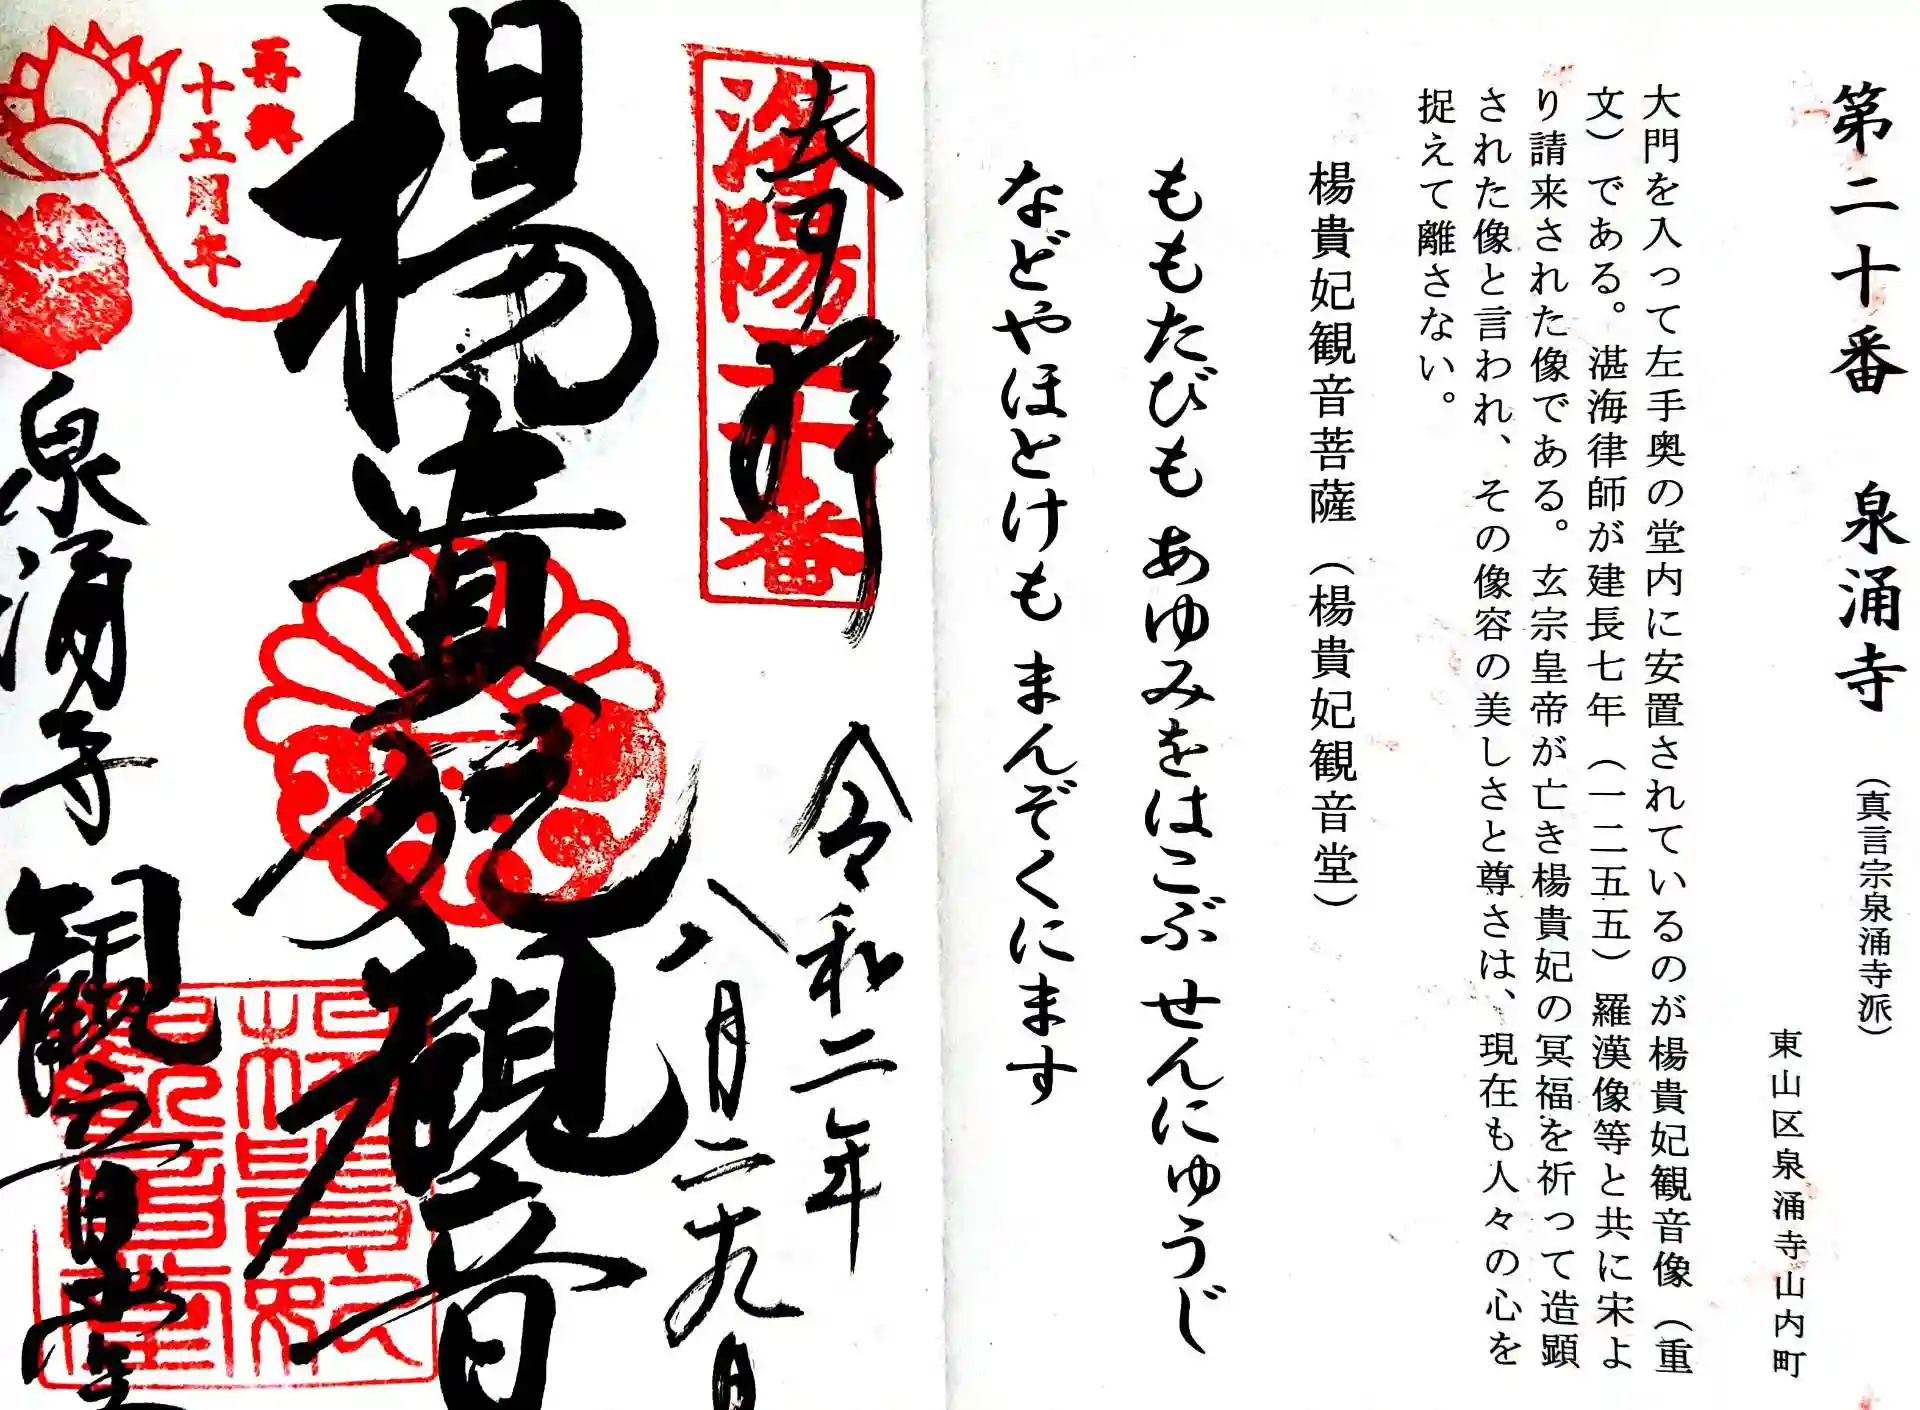 第二十番 泉涌寺 （真言宗泉涌寺派）
東山区泉涌寺山内町
大門を入って左手奥の堂内に安置されているのが楊貴妃観音像（重
文）である。湛海律師が建長七年（一二五五）羅漢像等と共に宋よ
り請来された像である。玄宗皇帝が亡き楊貴妃の冥福を祈って造顕
された像と言われ、その像容の美しさと尊さは、現在も人々の心を
捉えて離さない。
楊貴妃観音菩薩（楊貴妃観音堂）
ももたびも あゆみをはこぶ せんにゅうじ
などやほとけも まんぞくにます
奉拝
洛陽二十番
令和二年
八月二十九日
楊貴妃観音
再興
十五周年
泉涌寺 観音堂
楊貴妃
観音堂